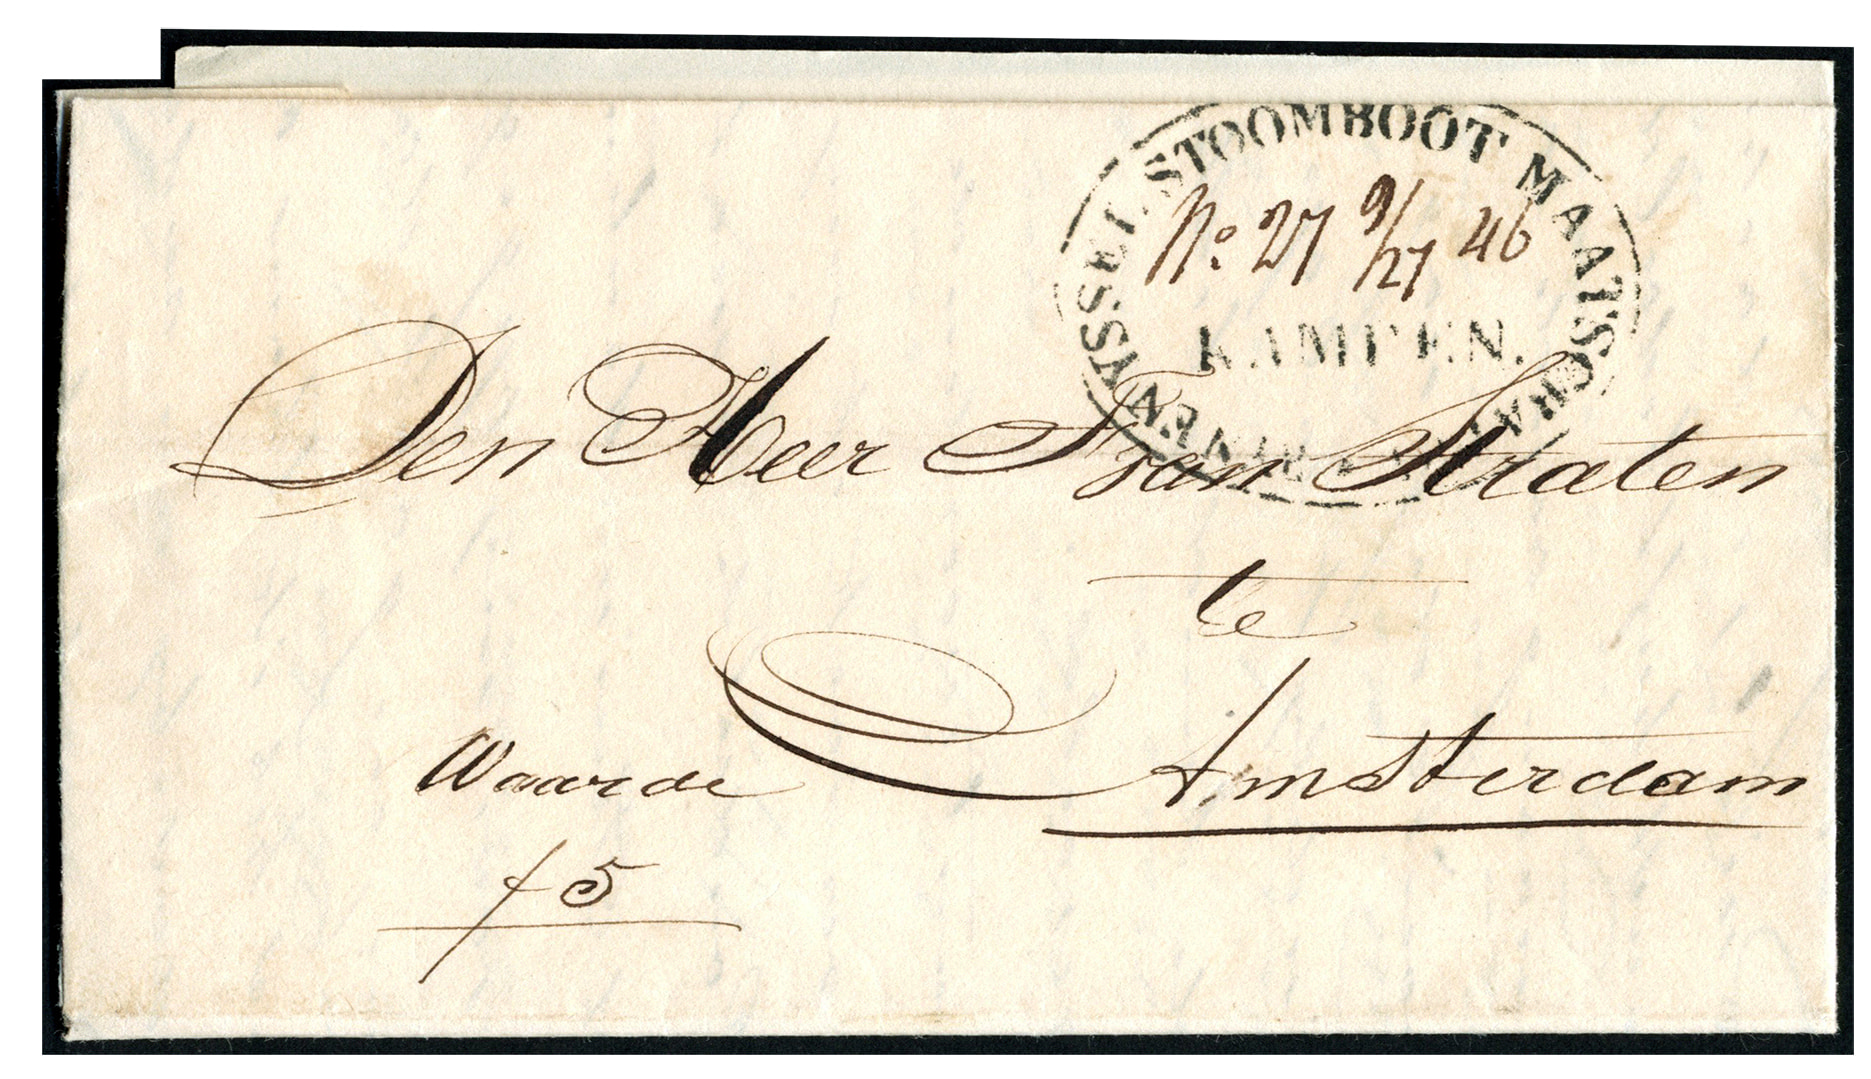 YSSEL STOOMBOOT MAATSCHAP
KAMPEN.
No. 27 9/27 46
Den Heer F van Straten
te
Amsterdam
Waarde
f 5